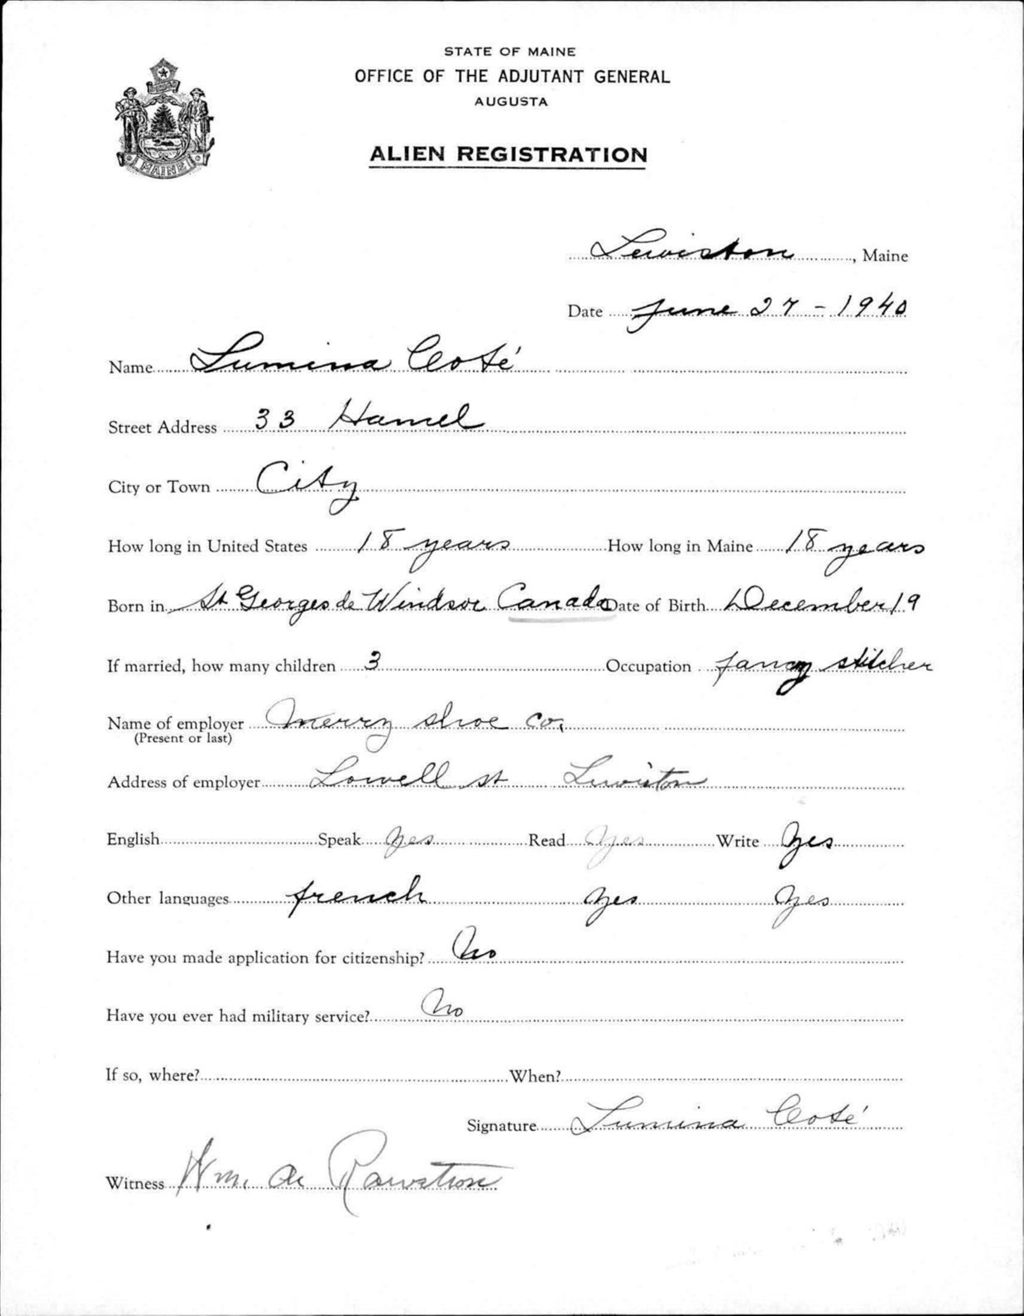 STATE OF MAINE
OFFICE OF THE ADJUTANT GENERAL
AUGUSTA
ALIEN REGISTRATION
MAINE
Lewiston, Maine
Date June 27 - 1940
Name Lumina Coté
Street Address 33 Hamel
City or Town City
How long in United States 18 years How long in Maine 18 years
Born in St Georges de Windsor Canada Date of Birth December 19
If married, how many children 3 Occupation fancy stitcher
Name of employer Merry Shoe Co.
(Present or last)
Address of employer Lowell st Lewiston
English Speak Yes Read Yes Write Yes
Other languages french Yes Yes
Have you made application for citizenship? No
Have you ever had military service? No
If so, where? When?
Signature Lumina Coté
Witness Wm. A Rawstron